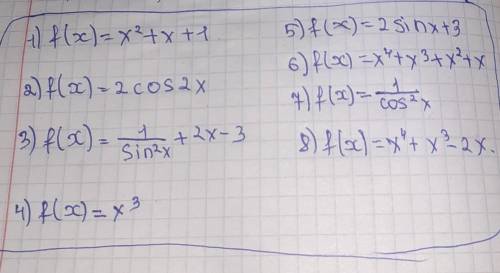 1) f(x)=x²+x+1
2) f(x)=2cos2x
3) f(x)=1/sin²x+2x-3
4) f(x)=x³
5) f(x)=2sinx+3
6) f(x)=x⁴+x³+x²+x
7) f(x)=1/cos²x
8) f(x)=x⁴+x³-2x.